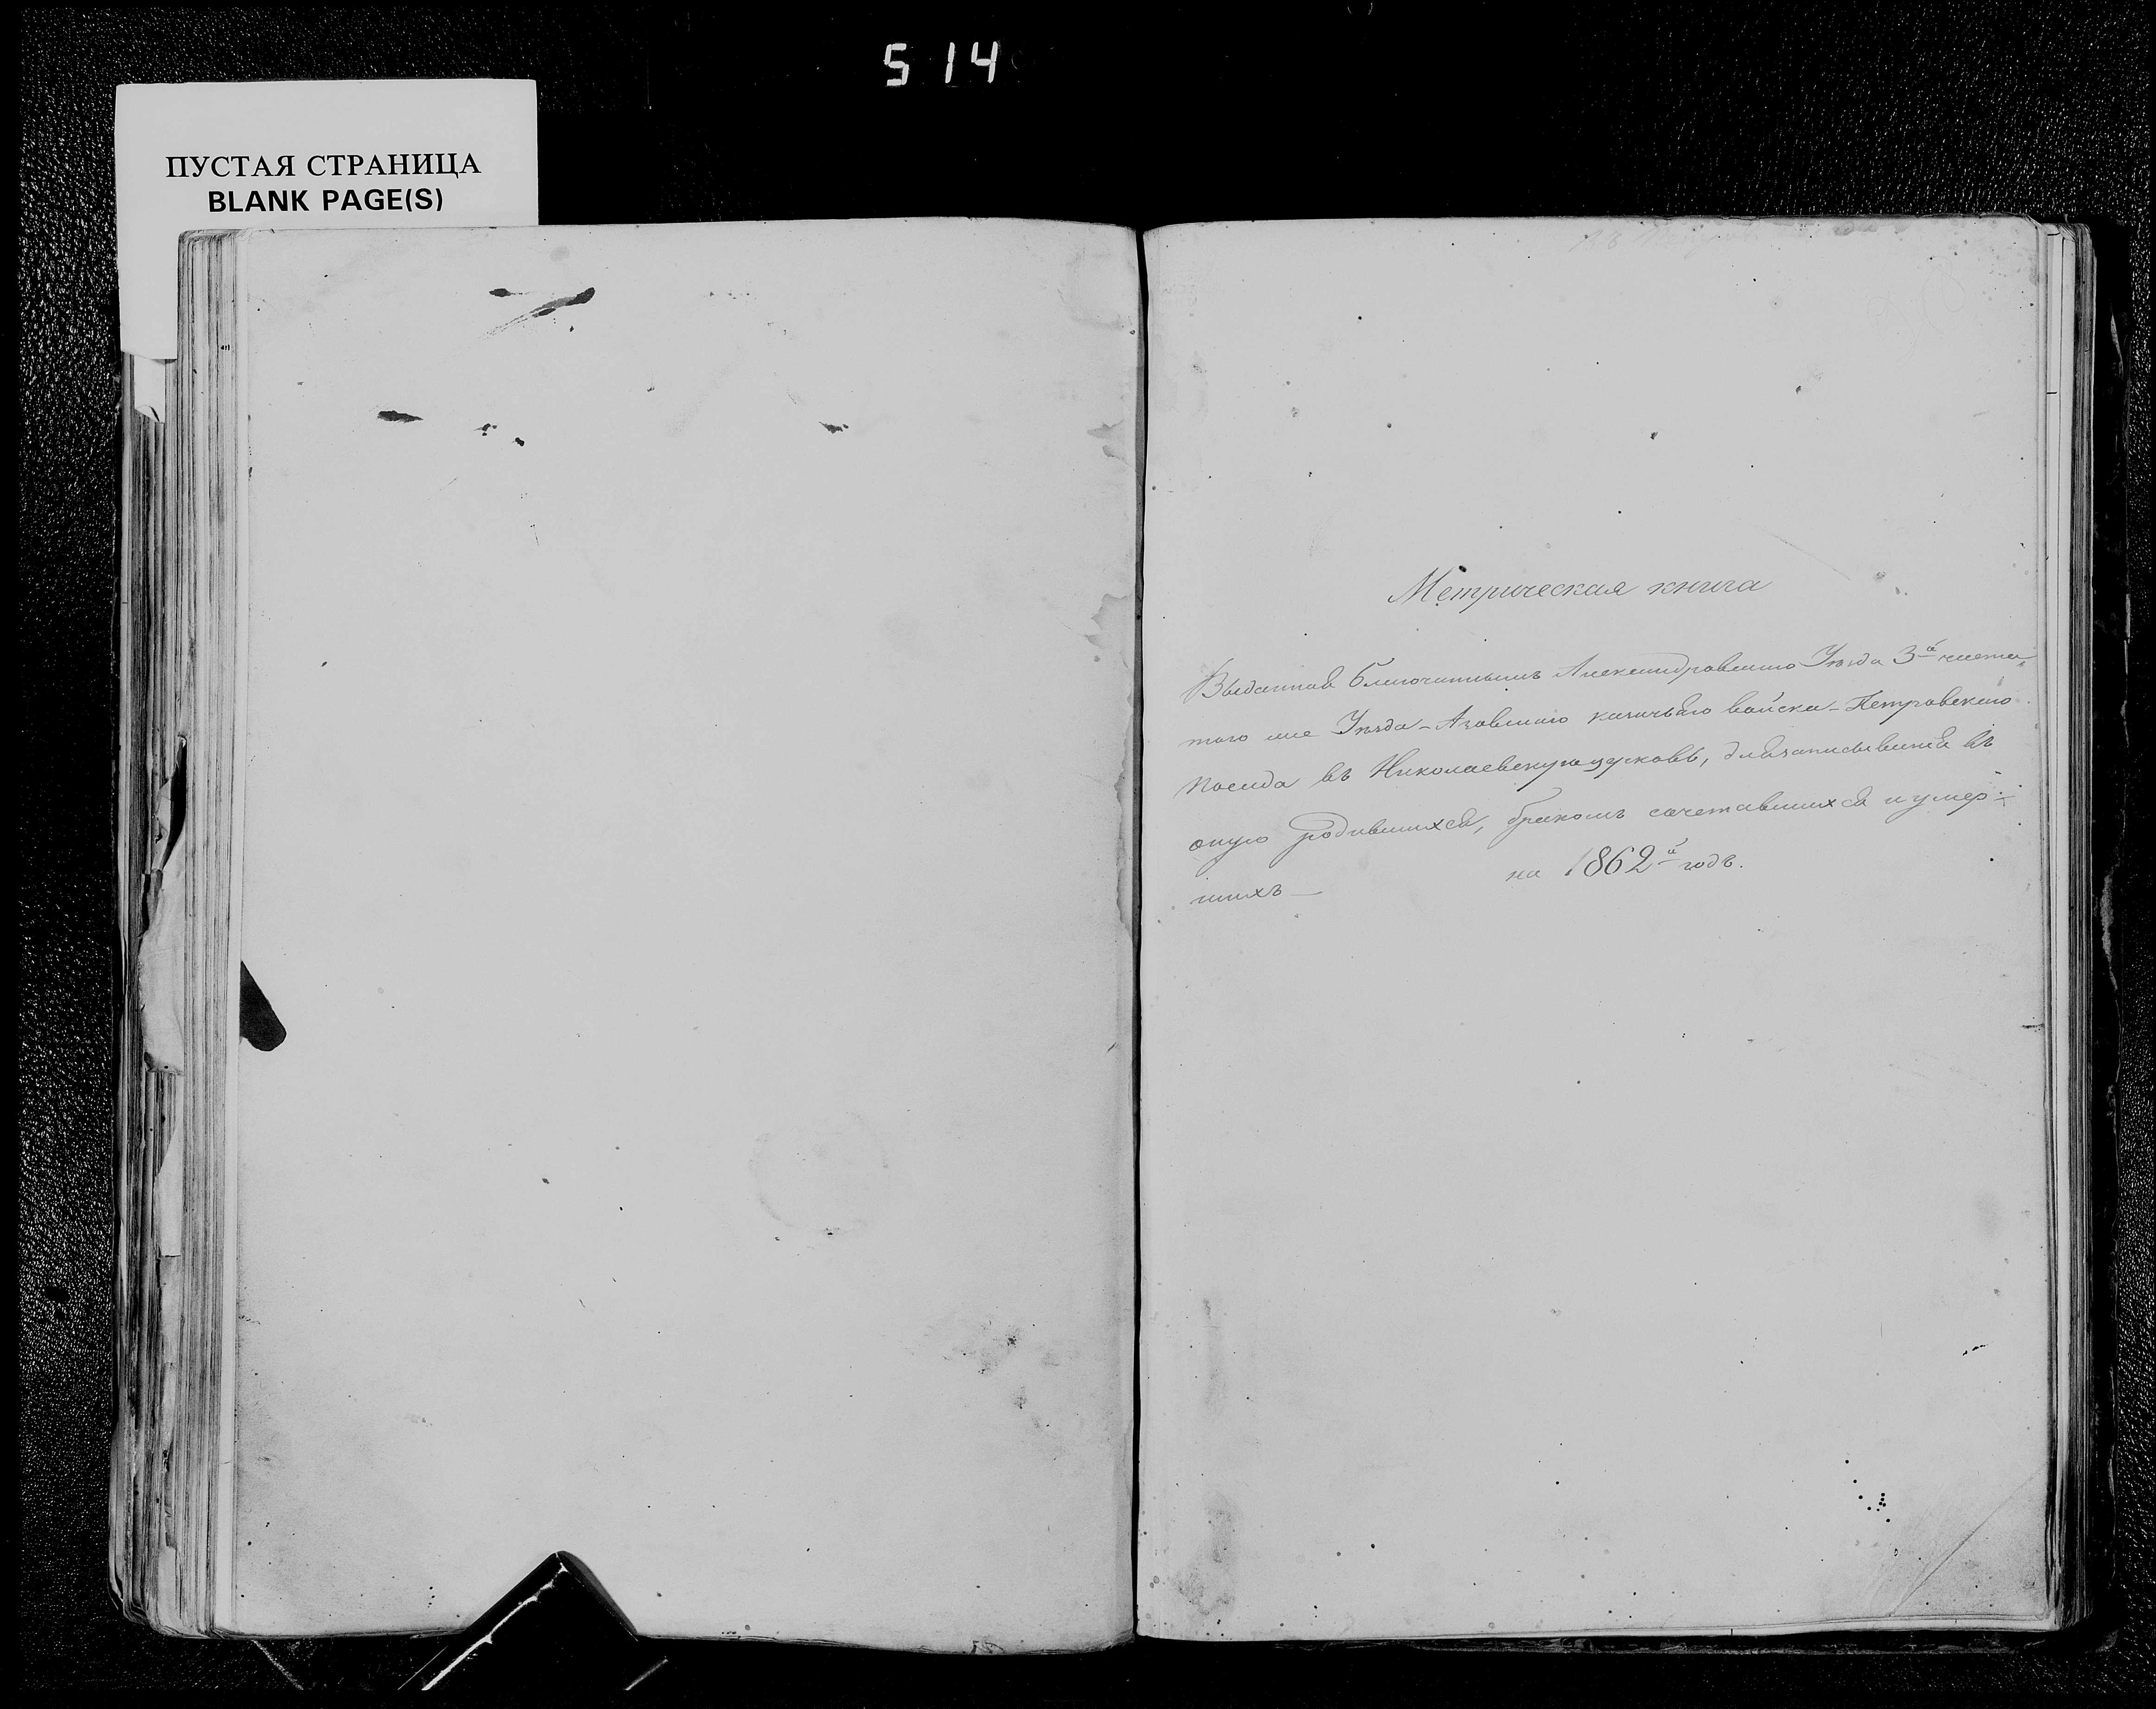 5 14
ПУСТАЯ СТРАНИЦА
BLANK PAGE(S)
Метрическая книга
Выданная Благочиннымъ Александровскаго Уѣзда 3й части
того же Уѣзда – Азовскаго казачьяго войска – Петровскаго
посада въ Николаевскую церковь, для записыванія въ
оную родившихся, бракомъ сочетавшихся и умер-
шихъ –
на 1862й годъ.